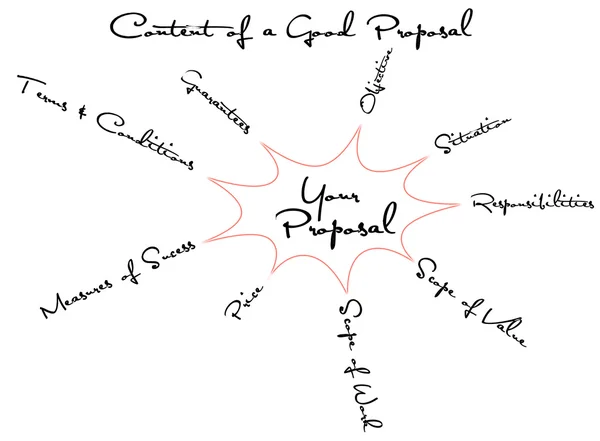 Content of a Good Proposal
Objective
Situation
Responsibilities
Scope of Value
Scope of Work
Price
Measures of Sucess
Terms & Conditions
Guarantees
Your
Proposal